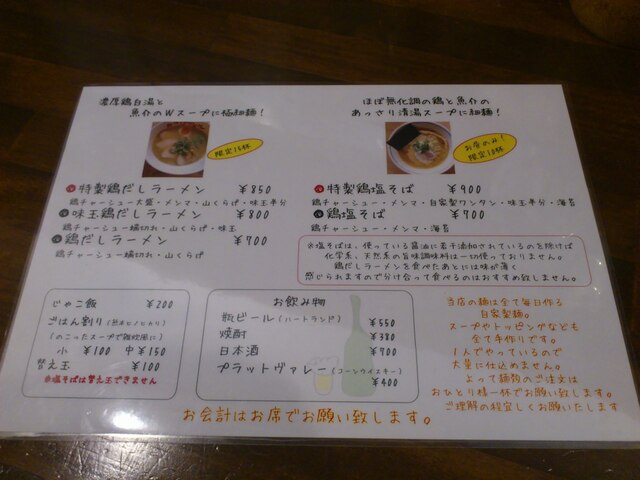 濃厚鶏白湯と
魚介のWスープに極細麺！
限定15杯
特製鶏だしラーメン ￥850
鶏チャーシュー大盛・メンマ・山くらげ・味玉半分
味玉鶏だしラーメン ￥800
鶏チャーシュー端切れ・山くらげ・味玉
鶏だしラーメン ￥700
鶏チャーシュー端切れ・山くらげ
ほぼ無化調の鶏と魚介の
あっさり清湯スープに細麺！
お昼のみ！
限定10杯
特製鶏塩そば ￥900
鶏チャーシュー・メンマ・自家製ワンタン・味玉半分・海苔
鶏塩そば ￥700
鶏チャーシュー・メンマ・海苔
※塩そばは、使っている醤油に若干添加されているのを除けば
化学系、天然系の旨味調味料は一切使っておりません。
鶏だしラーメンを食べたあとには味が薄く
感じられますので分け合って食べるのはおすすめ致しません。
じゃこ飯 ￥200
ごはん割り（熊本ヒノヒカリ）
（のこったスープで雑炊風に）
小 ￥100 中￥150
替え玉 ￥100
※塩そばは替え玉できません
お飲み物
瓶ビール（ハートランド） ￥550
焼酎 ￥380
日本酒 ￥700
プラットヴァレー（コーンウイスキー）
￥400
当店の麺は全て毎日作る
自家製麺。
スープやトッピングなども
全て手作りです。
1人でやっているので
大量に仕込めません。
よって麺類のご注文は
おひとり様一杯でお願い致します。
ご理解の程宜しくお願いします
お会計はお席でお願い致します。